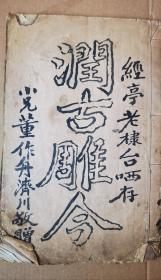 經亭老棣台哂存
潤古雕今
小兄董作舟濟川敬贈